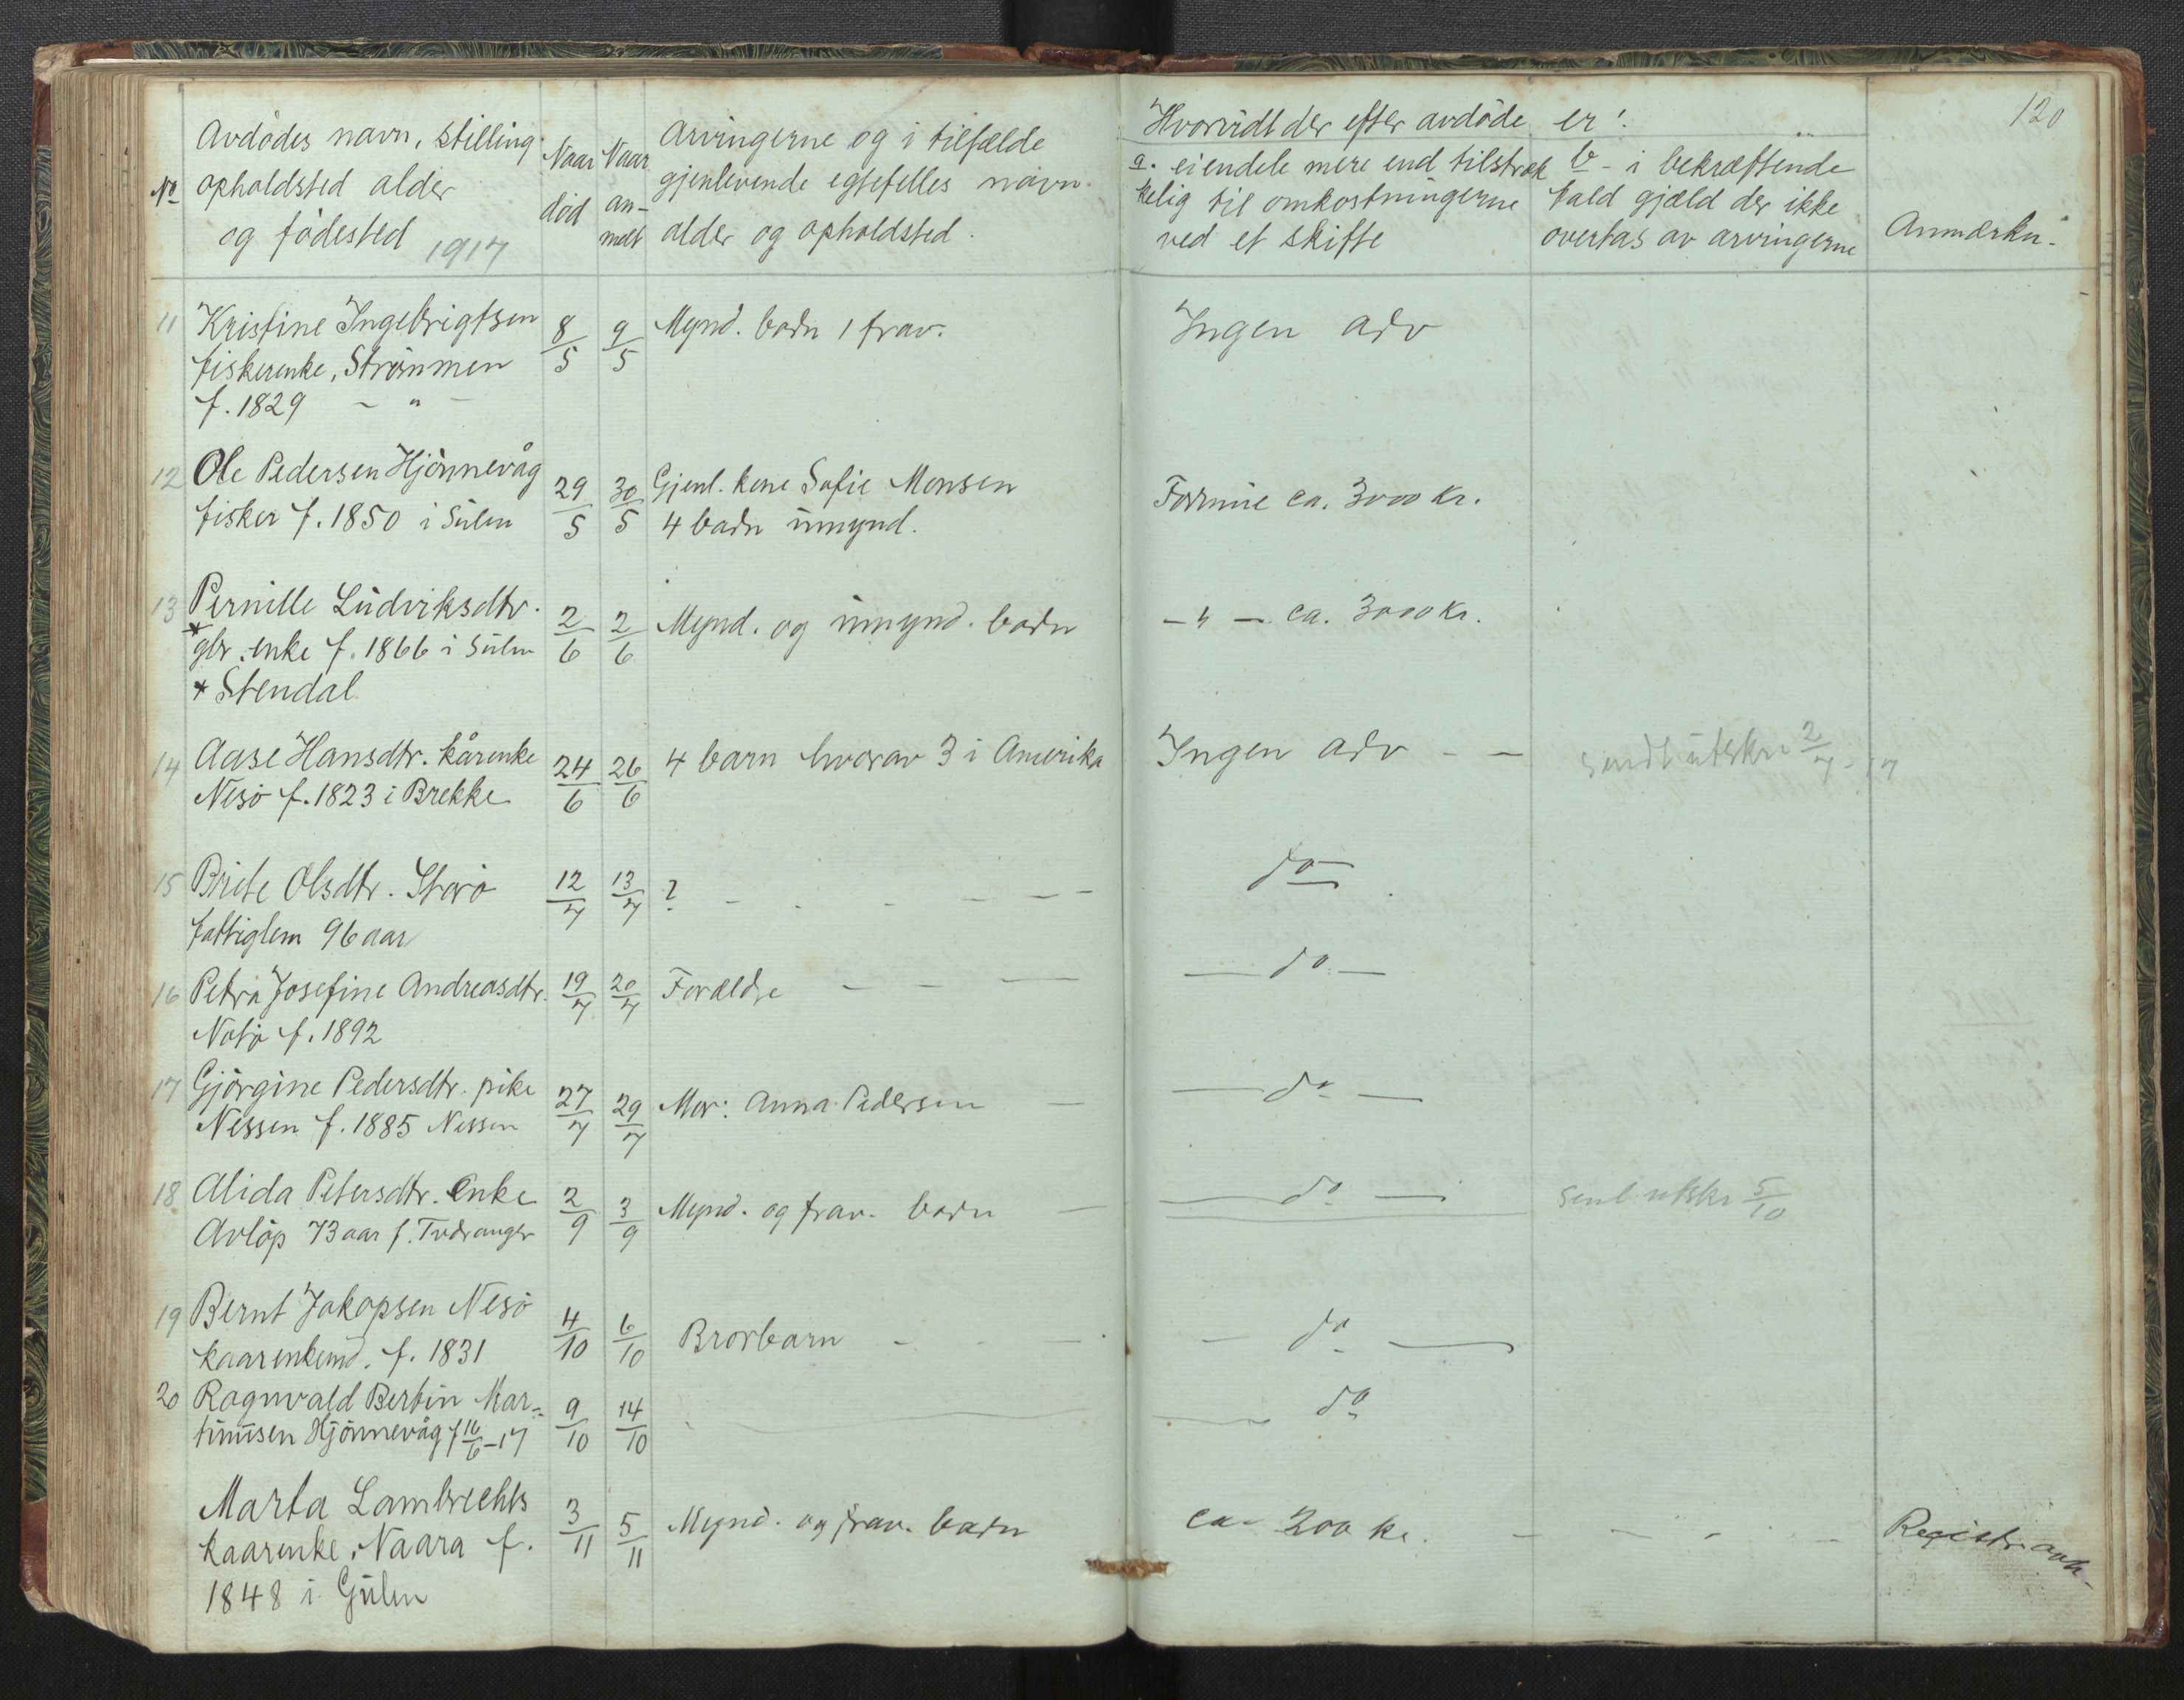 120
No
Avdødes navn, stilling
opholdsted alder
og fødested 1917
Naar
død
Naar
an-
melt
Arvingerne og i tilfælde
gjenlevende egtefelles navn
alder og opholdsted.
Hvorvidt der efter avdøde er:
a. eiendele mere end tilstræk
kelig til omkostningerne
ved et skifte
b - i bekræftende
fald gjæld der ikke
overtas av arvingerne
Anmærkn.
11 Kristine Ingebrigtsen 8/5 9/5 Mynd. barn 1 frav. Ingen arv
fiskerenke, Strømmen
f. 1829 - " -
12 Ole Pedersen Hjønnevåg 29/5 30/5 Gjenl. kone Sofie Monsen Formue ca. 3000 kr.
fisker f. 1850 i Sulen 4 barn umynd.
13 Pernille Ludviksdtr. 2/6 2/6 Mynd. og umynd. barn - " - ca. 3000 kr.
* gbr. enke f. 1866 i Sulen
* Stendal
14 Aase Hansdtr. kårenke 24/6 26/6 4 barn hvorav 3 i Amerika Ingen arv - - sendt utskr 2/7-17
Nesø f. 1823 i Brekke
15 Brite Olsdtr. Storø 12/7 13/7 ? - - - - - do
fattiglem 96 aar
16 Petra Josefine Andreasdtr. 19/7 20/7 Forældre - - - - do -
Notø f. 1892
17 Gjørgine Pedersdtr. pike 27/7 29/7 Mor: Anna Pedersen - - do -
Nessen f. 1885 Nessen
18 Alida Petersdtr. enke 2/9 3/9 Mynd. og frav. barn - - do - sent utskr 5/10
Avløp 73 aar f.
19 Bernt Jakopsen Nesø 4/10 6/10 Brorbarn - - - - do -
kaarenkemd. f. 1831
20 Ragnvald Bertin Mar= 9/10 14/10 - do
tinussen Hjønnevåg f 16/6-17
Marta Lambrechts 3/11 5/11 Mynd. og frav. barn ca. 200 kr. - - - - Registr.
kaarenke, Naara f.
1848 i Gulen